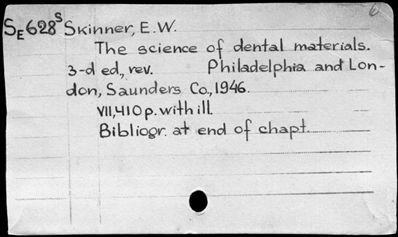 6
SE628S Skinner, E.W.
The science of dental materials.
3-d ed., rev. Philadelphia and Lon-
don, Saunders Co., 1946.
VII, 410 p. with ill.
Bibliogr. at end of chapt.